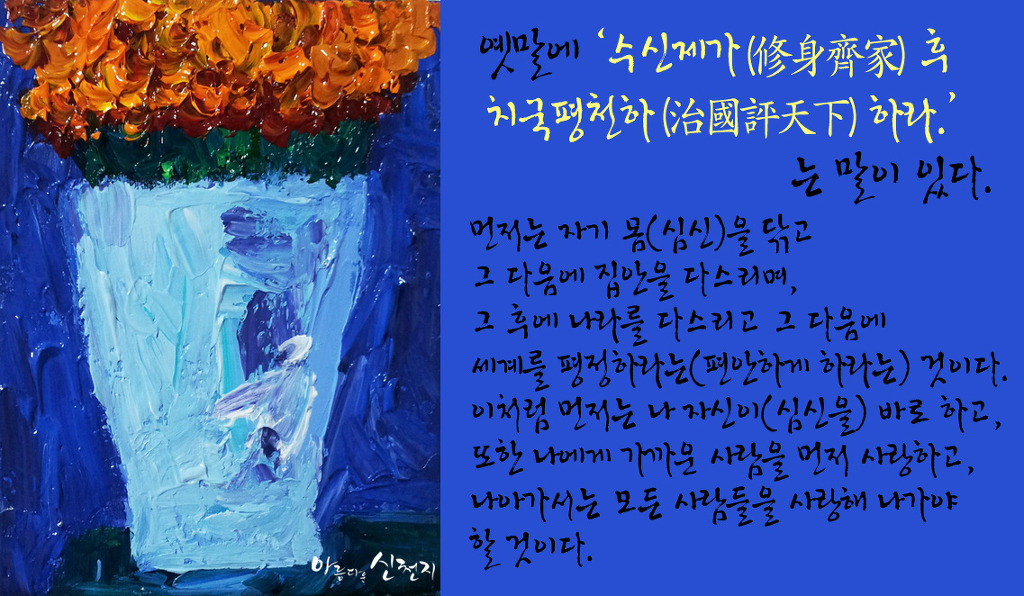 옛말에 ‘수신제가(修身齊家) 후
치국평천하(治國評天下) 하라.’
는 말이 있다.
먼저는 자기 몸(심신)을 닦고
그 다음에 집안을 다스리며,
그 후에 나라를 다스리고 그 다음에
세계를 평정하라는(편안하게 하라는) 것이다.
이처럼 먼저는 나 자신이(심신을) 바로 하고,
또한 나에게 가까운 사람을 먼저 사랑하고,
나아가서는 모든 사람들을 사랑해 나가야
할 것이다.
아름다운 신천지